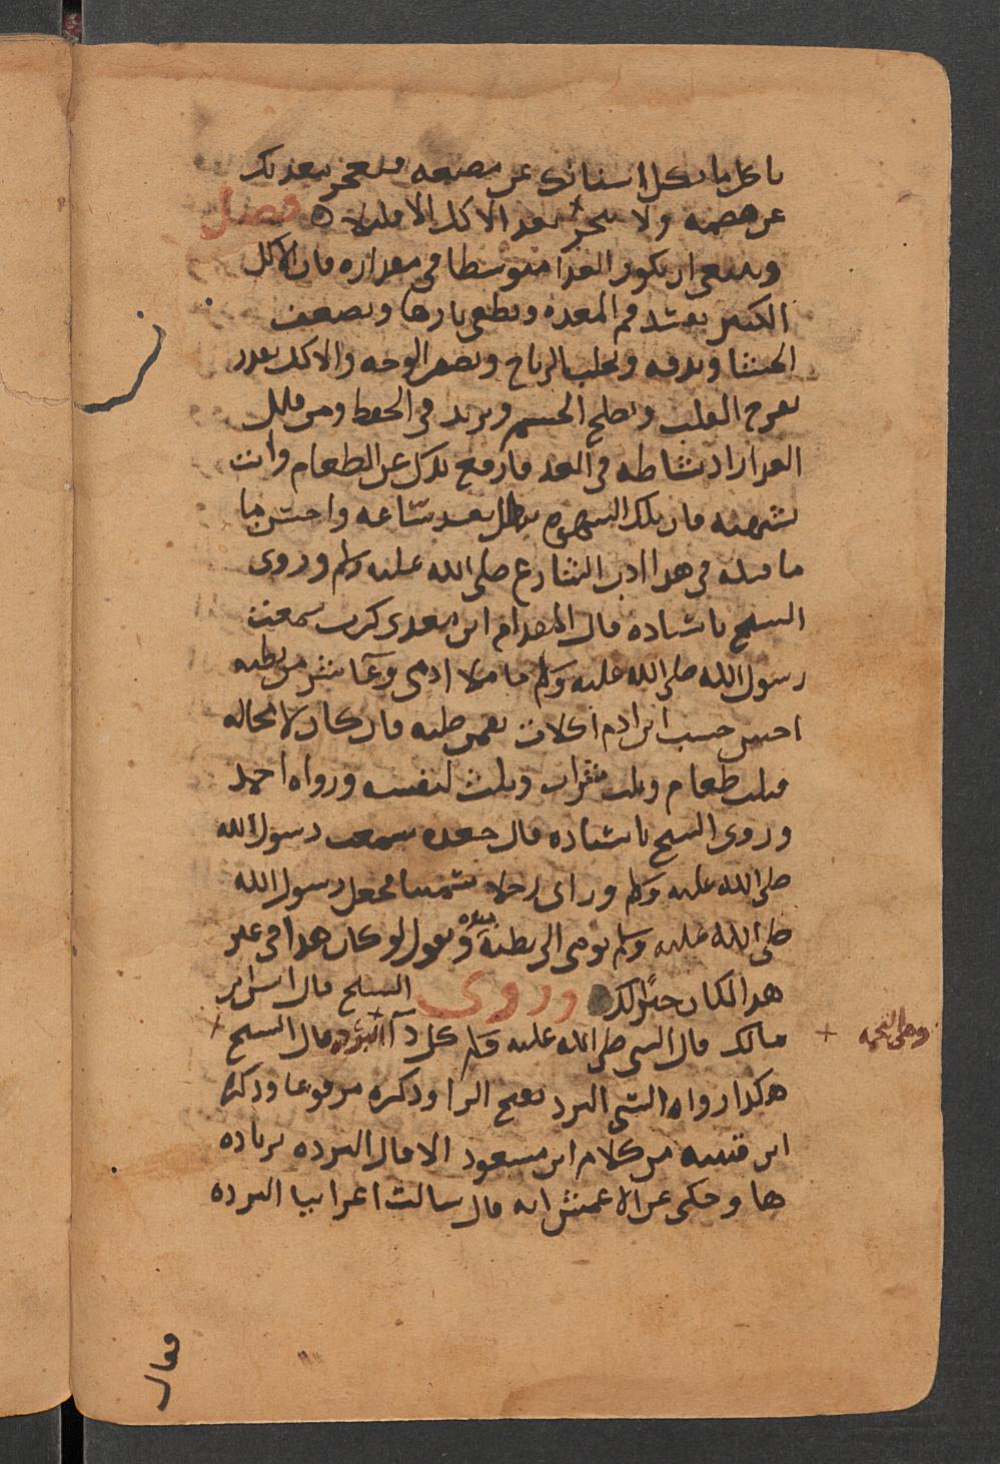 تاكل ما تكل اسنانك عن مضغه فتعجز معدتك
عن هضمه ولا بعد الاكل الا قليلا ه فصل
وينبغي ان يكون الغدا متوسطا في مقداره فان الاكل
الكثير يفسد فم المعدة ويطفي نارها ويضعف
الجثثا ويجلب الرياح ويصفر الوجه والاكل بقدر
يفرح القلب ويصلح الجسم ويزيد في الحفظ ومن قلل
الغدا زاد نشاطه في الغد فارفع يدك عن الطعام وانت
تشتهيه فان تلك الشهوة تبطل بعد ساعه واحسن ما
ما قيل في هذا ادب الشارع صلى الله عليه وسلم وروى
الشيخ باسناده قال المقدام ابن معدي كرب سمعت
رسول الله صلى الله عليه وسلم ما ملا ادمي وعاً شر من بطنه
احسن حسب ابن ادم اكلات يقمن صلبه فان كان لا محاله
فثلث طعام وثلث شراب وثلث لنفسه ورواه احمد
وروى الشيخ باسناده قال جعده سمعت رسول الله
صلى الله عليه وسلم وراى رجلا سمينا فجعل رسول الله
صلى الله عليه وسلم يومي الى بطنه بيده ويقول لو كان هذا في غير
هذا لكان خيرا لك وروى الشيخ قال انس ابن
مالك قال النبي صلى الله عليه وسلم كل دآ البرده قال الشيخ
وهي التخمه
هكذا رواه البرد بفتح الرا وذكره مرفوعا وذكره
ابن قتيبه من كلام ابن مسعود الا قال البرده بزياده
ها وحكى عن الاعمش انه قال سالت اعرابيا البرده
فقال